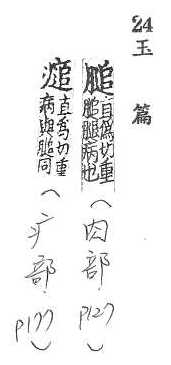 24 玉篇
膇 直為切重膇腿病也（肉部．P127）
㿏 直為切重病與膇同（疒部．P177）